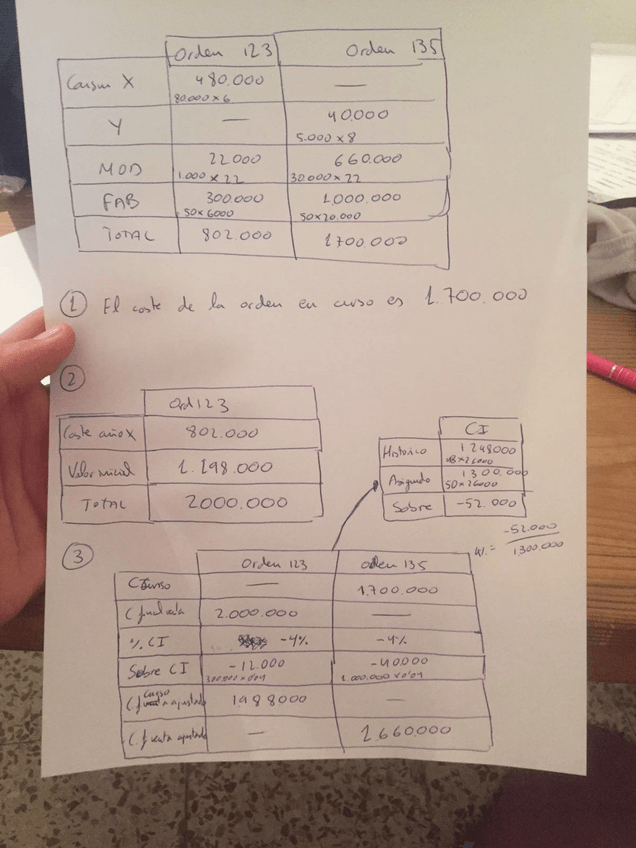 Orden 123 Orden 135
Consum X 480.000 —
80.000 x 6
Y — 40.000
5.000 x 8
MOD 22.000 660.000
1.000 x 22 30.000 x 22
FAB 300.000 1.000.000
50 x 6000 50 x 20.000
TOTAL 802.000 1700.000
① El coste de la orden en curso es 1.700.000
②
Ord 123
Coste año X 802.000
Valor inicial 1.198.000
TOTAL 2000.000
CI
Histórico 1248000
48 x 26000
Asignado 1300.000
50 x 26000
Sobre -52.000
③
Orden 123 orden 135
C curso — 1.700.000
C. final 2.000.000 —
% CI -4% -4%
Sobre CI -12.000 -40000
300.000 x 0'04 1.000.000 x 0'04
C. curso ajustado 1988000 —
C. f. venta ajustado — 1660000
%= -52.000
1300.000